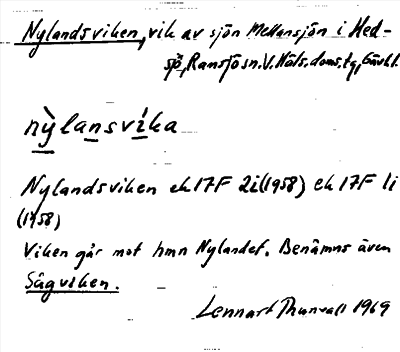 Nylandsviken, vik av sjön Mellansjön i Hed-
sjö, Ransjö sn. V. Häls. doms. tg, Gävl. l.
nỳlansvíka
Nylandsviken ek 17F 2i (1958) ek 17F 1i
(1958)
Viken går mot hmn Nylandet. Benämns även
Sågviken.
Lennart Thunvall 1969